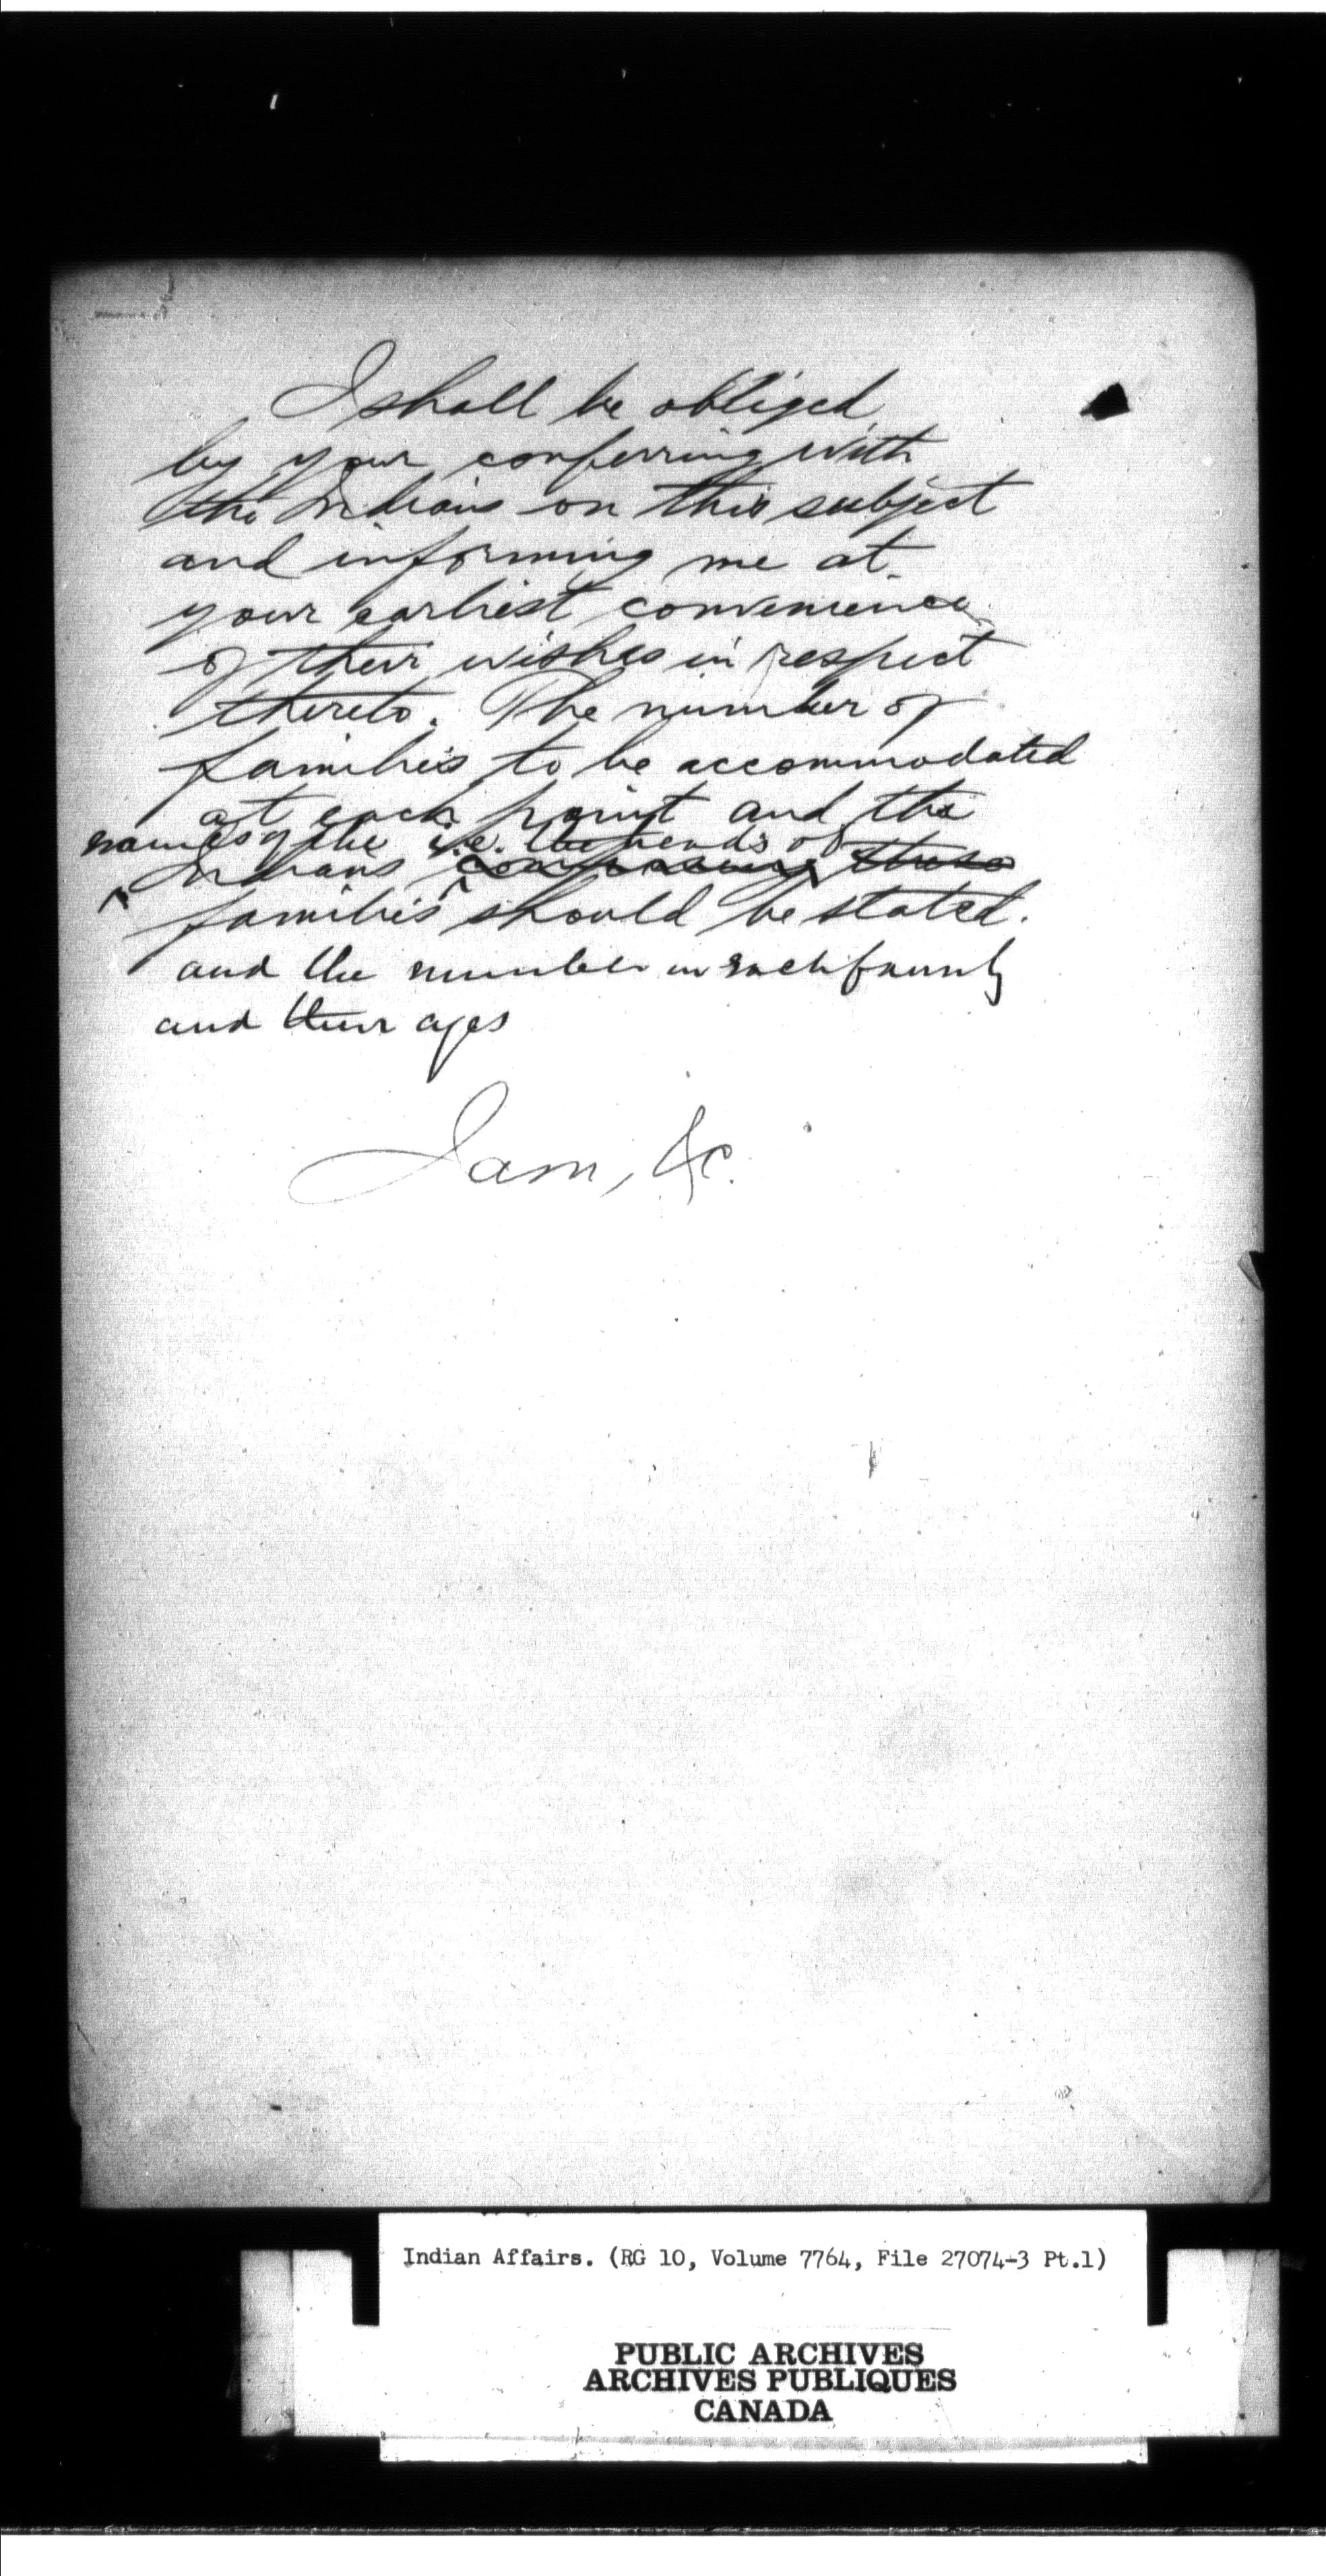 I shall be obliged
by your conferring with
the Indians on this subject
and informing me at
your earliest convenience
of their wishes in respect
thereto. The number of
families to be accommodated
at each point and the
names of the i.e. the heads of
Indians composing these
families should be stated.
and the number in each family
and their ages
I am, &c.
Indian Affairs. (RG 10, Volume 7764, File 27074-3 Pt.1)
PUBLIC ARCHIVES
ARCHIVES PUBLIQUES
CANADA